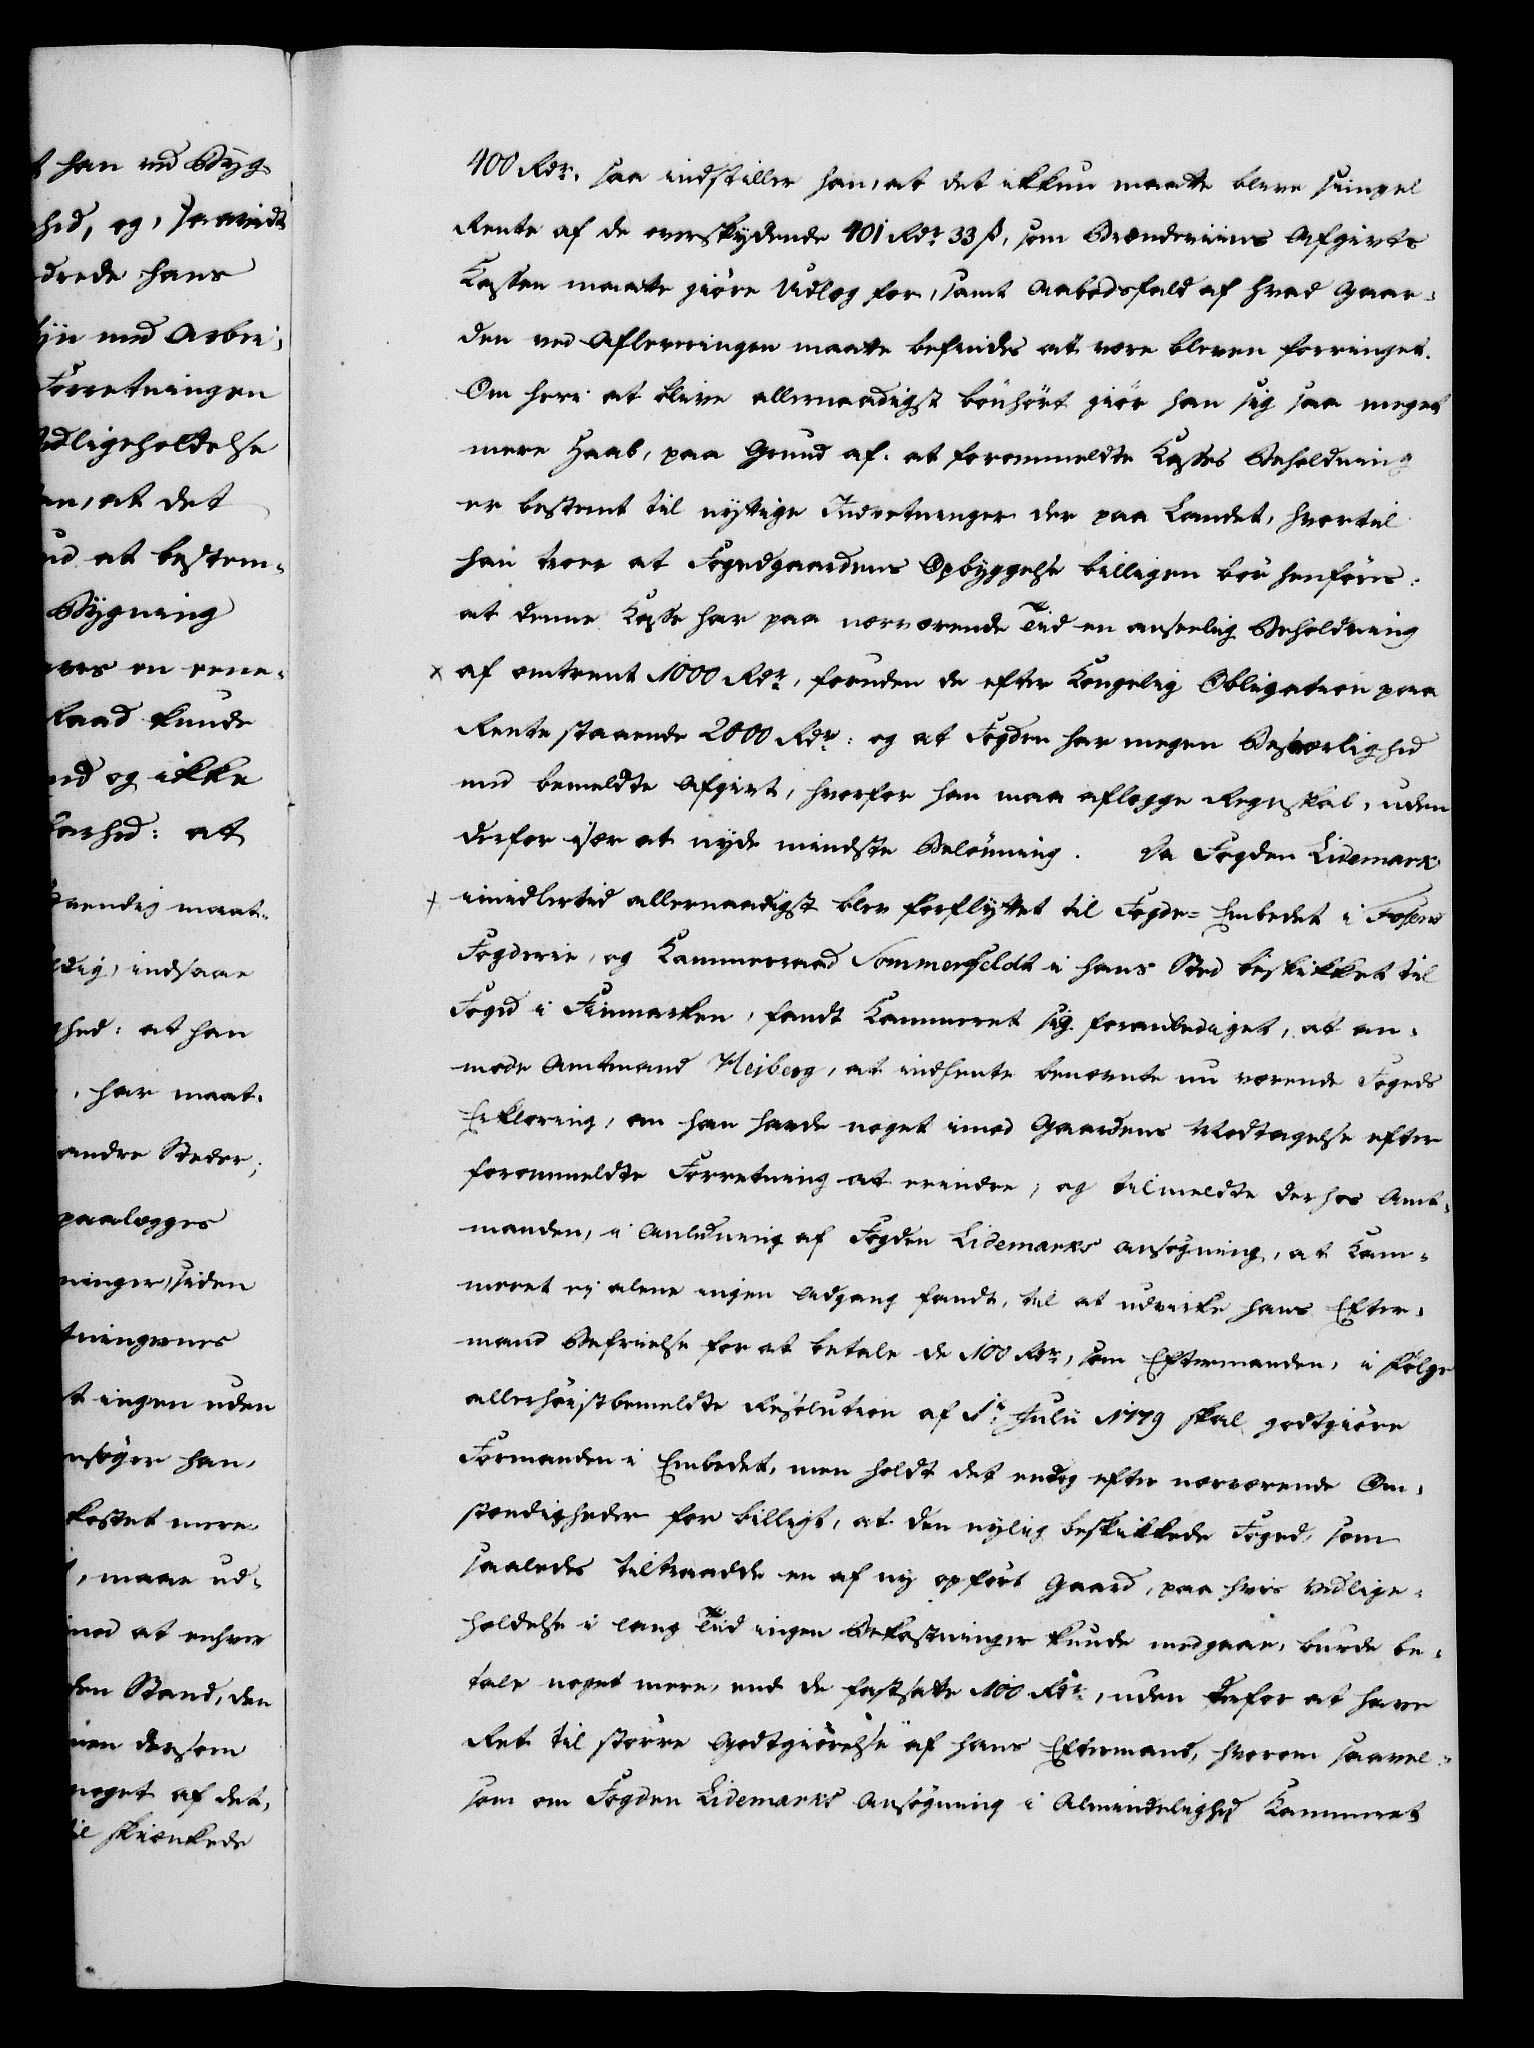 han ved Byg
hed, og, saavidt
drede hans
med Arbei,
Forretningen
edligeholdelse
an, at det
at bestem-
Bygning
en eene-
Raad kunde
og ikke
barhed: at
vendig maat-
indsaae
ghed: at han
, har maat-
andre Steder;
paalægges
ninger, siden
tningernes
t ingen uden
nsøger han,
kostet mere
, maae ud-
mod at enhver
den Stand, den
men dersom
noget af det,
til skiænkede
400 Rdr. saa indstiller han, at det ikkun maatte blive simpel
Rente af de overskydende 401 Rdr 33 ß, som Brændeviins Afgivts
Kassen maatte giøre Udlæg for, samt Aabodsfald af hvad Gaar-
den ved Afleveringen maatte befindes at være bleven forringet.
Om heri at blive allernaadigst bønhørt giør han sig saa meget
mere Haab, paa Grund af: at forommeldte Kasses Beholdning
er bestemt til nyttige Indretninger der paa Landet, hvortil
han troer at Fogedgaardens Opbyggelse billigen bør henføres:
at denne Kasse har paa nærværende Tiid en anseelig Beholdning
× af omtrent 1000 Rdr, foruden de efter Kongelig Obligation paa
Rente staaende 2000 Rdr: og at Fogden har megen Besværlighed
med bemeldte Afgivt, hvorfor han maa aflægge Regnskab, uden
derfor især at nyde mindste Belønning. Da Fogden Lidemark
+ imidlertid allernaadigst blev forflyttet til Fogde- Embedet i Fosens
Fogderie, og Kammerraad Sommerfeldt i hans Sted beskikket til
Foged i Finmarken, fandt Kammeret sig foranlediget, at an-
mode Amtmand Heiberg, at indhente benævnte nu værende Fogeds
Erklæring, om han havde noget imod Gaardens Modtagelse efter
forommeldte Forretning at erindre, og tilmeldte derhos Amt-
manden, i Anledning af Fogden Lidemarks Ansøgning, at Kam-
meret ej alene ingen Adgang fandt, til at udvirke hans Efter-
mand Befrielse for at betale de 100 Rdr, som Eftermanden, i Følge
allerhøistbemeldte Resolution af 1te Julii 1779 skal godtgiøre
Formanden i Embedet, men holdt det endog efter nærværende Om-
stændigheder for billigt, at den nylig beskikkede Foged, som
saaledes tiltraadde en af ny opført Gaard, paa hvis Vedlige-
holdelse i lang Tiid ingen Bekostninger kunde medgaae, burde be-
tale noget mere, end de fastsatte 100 Rdr, uden derfor at have
Ret til større Godtgiørelse af hans Eftermand, hvorom saavel-
som om Fogden Lidemarks Ansøgning i Almindelighed Kammeret